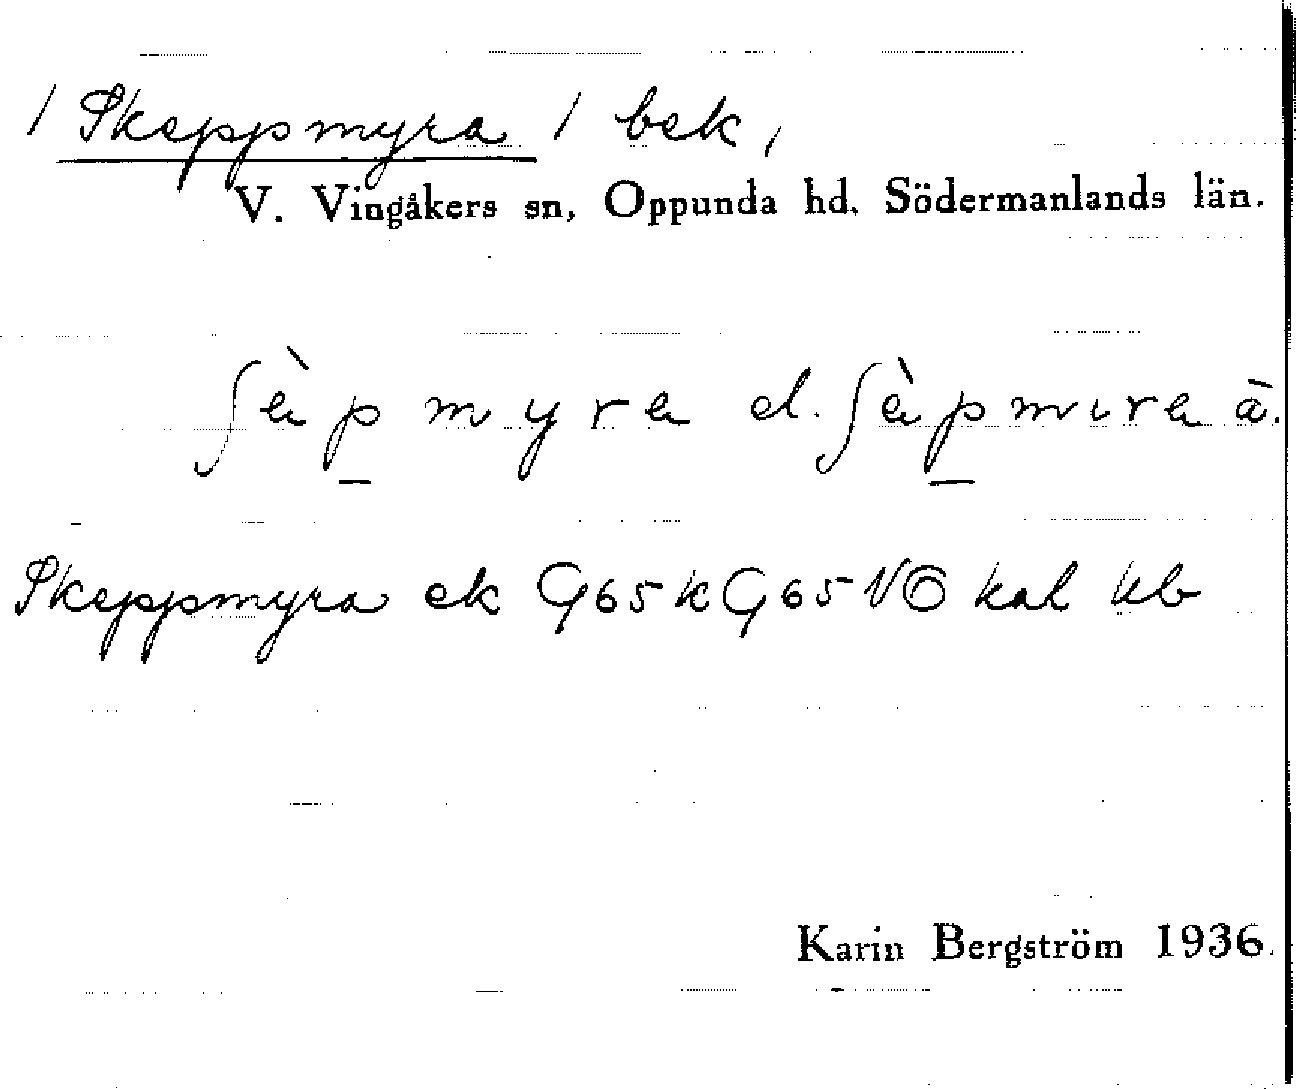 / Skeppmyra / bek,
V. Vingåkers sn, Oppunda hd, Södermanlands län.
ʃàp̲ myra el. ʃàp̲ mıra ā.
Skeppmyra ek G65k G65 NO kal kb
Karin Bergström 1936.